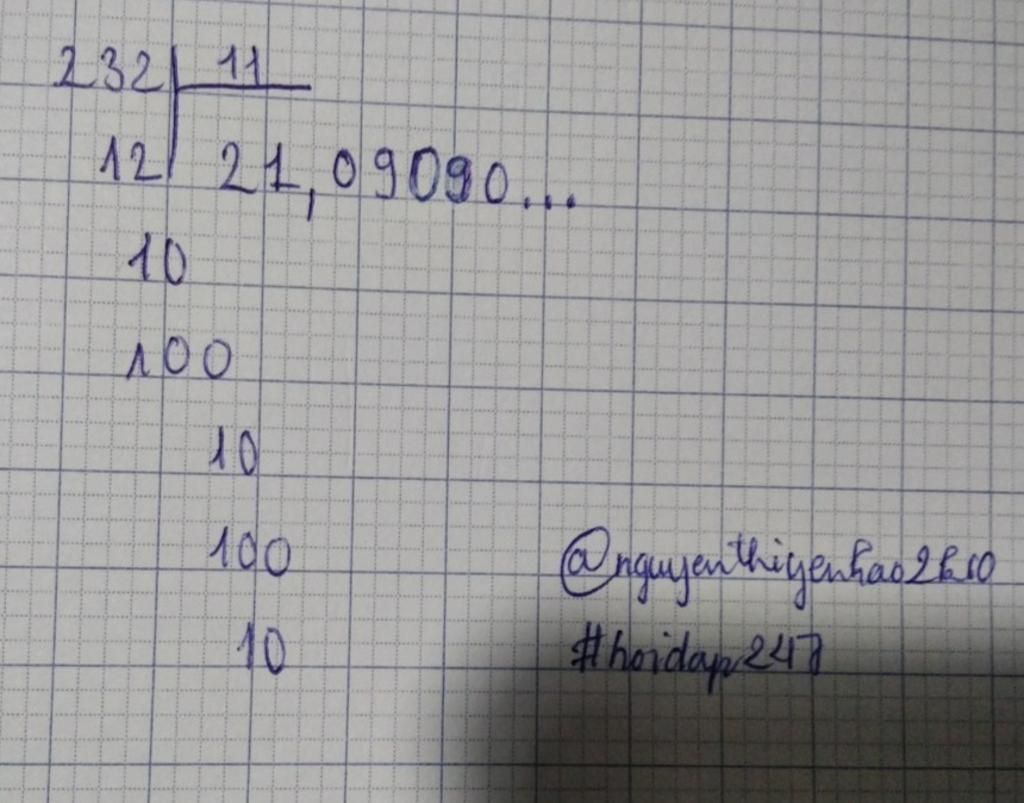 232 11
12 21,09090...
10
100
10
100
@nguyenthiyenhao2k10
10
#hoidap247